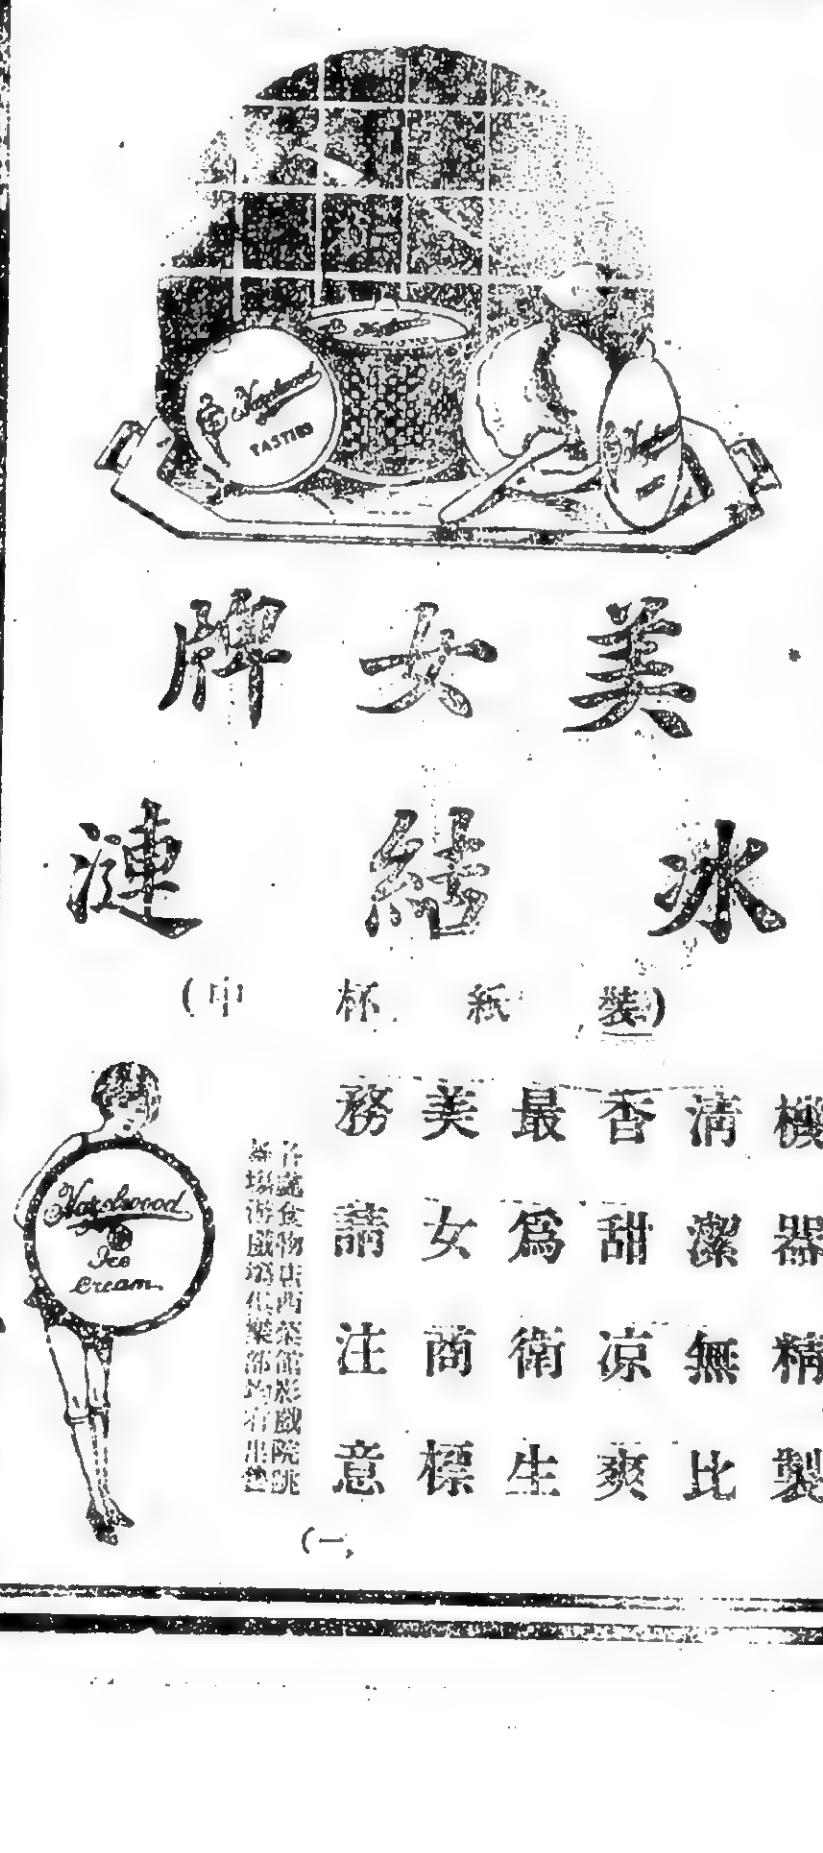 Hazelwood
TASTIES
美女牌
冰結漣
(裝紙杯中)
機器精製
清潔無比
香甜凉爽
最爲衛生
美女商標
務請注意
各食物店西菜館影戲院跳
舞場游戲場俱樂部均有出售
(一)
Hazelwood
Ice
Cream